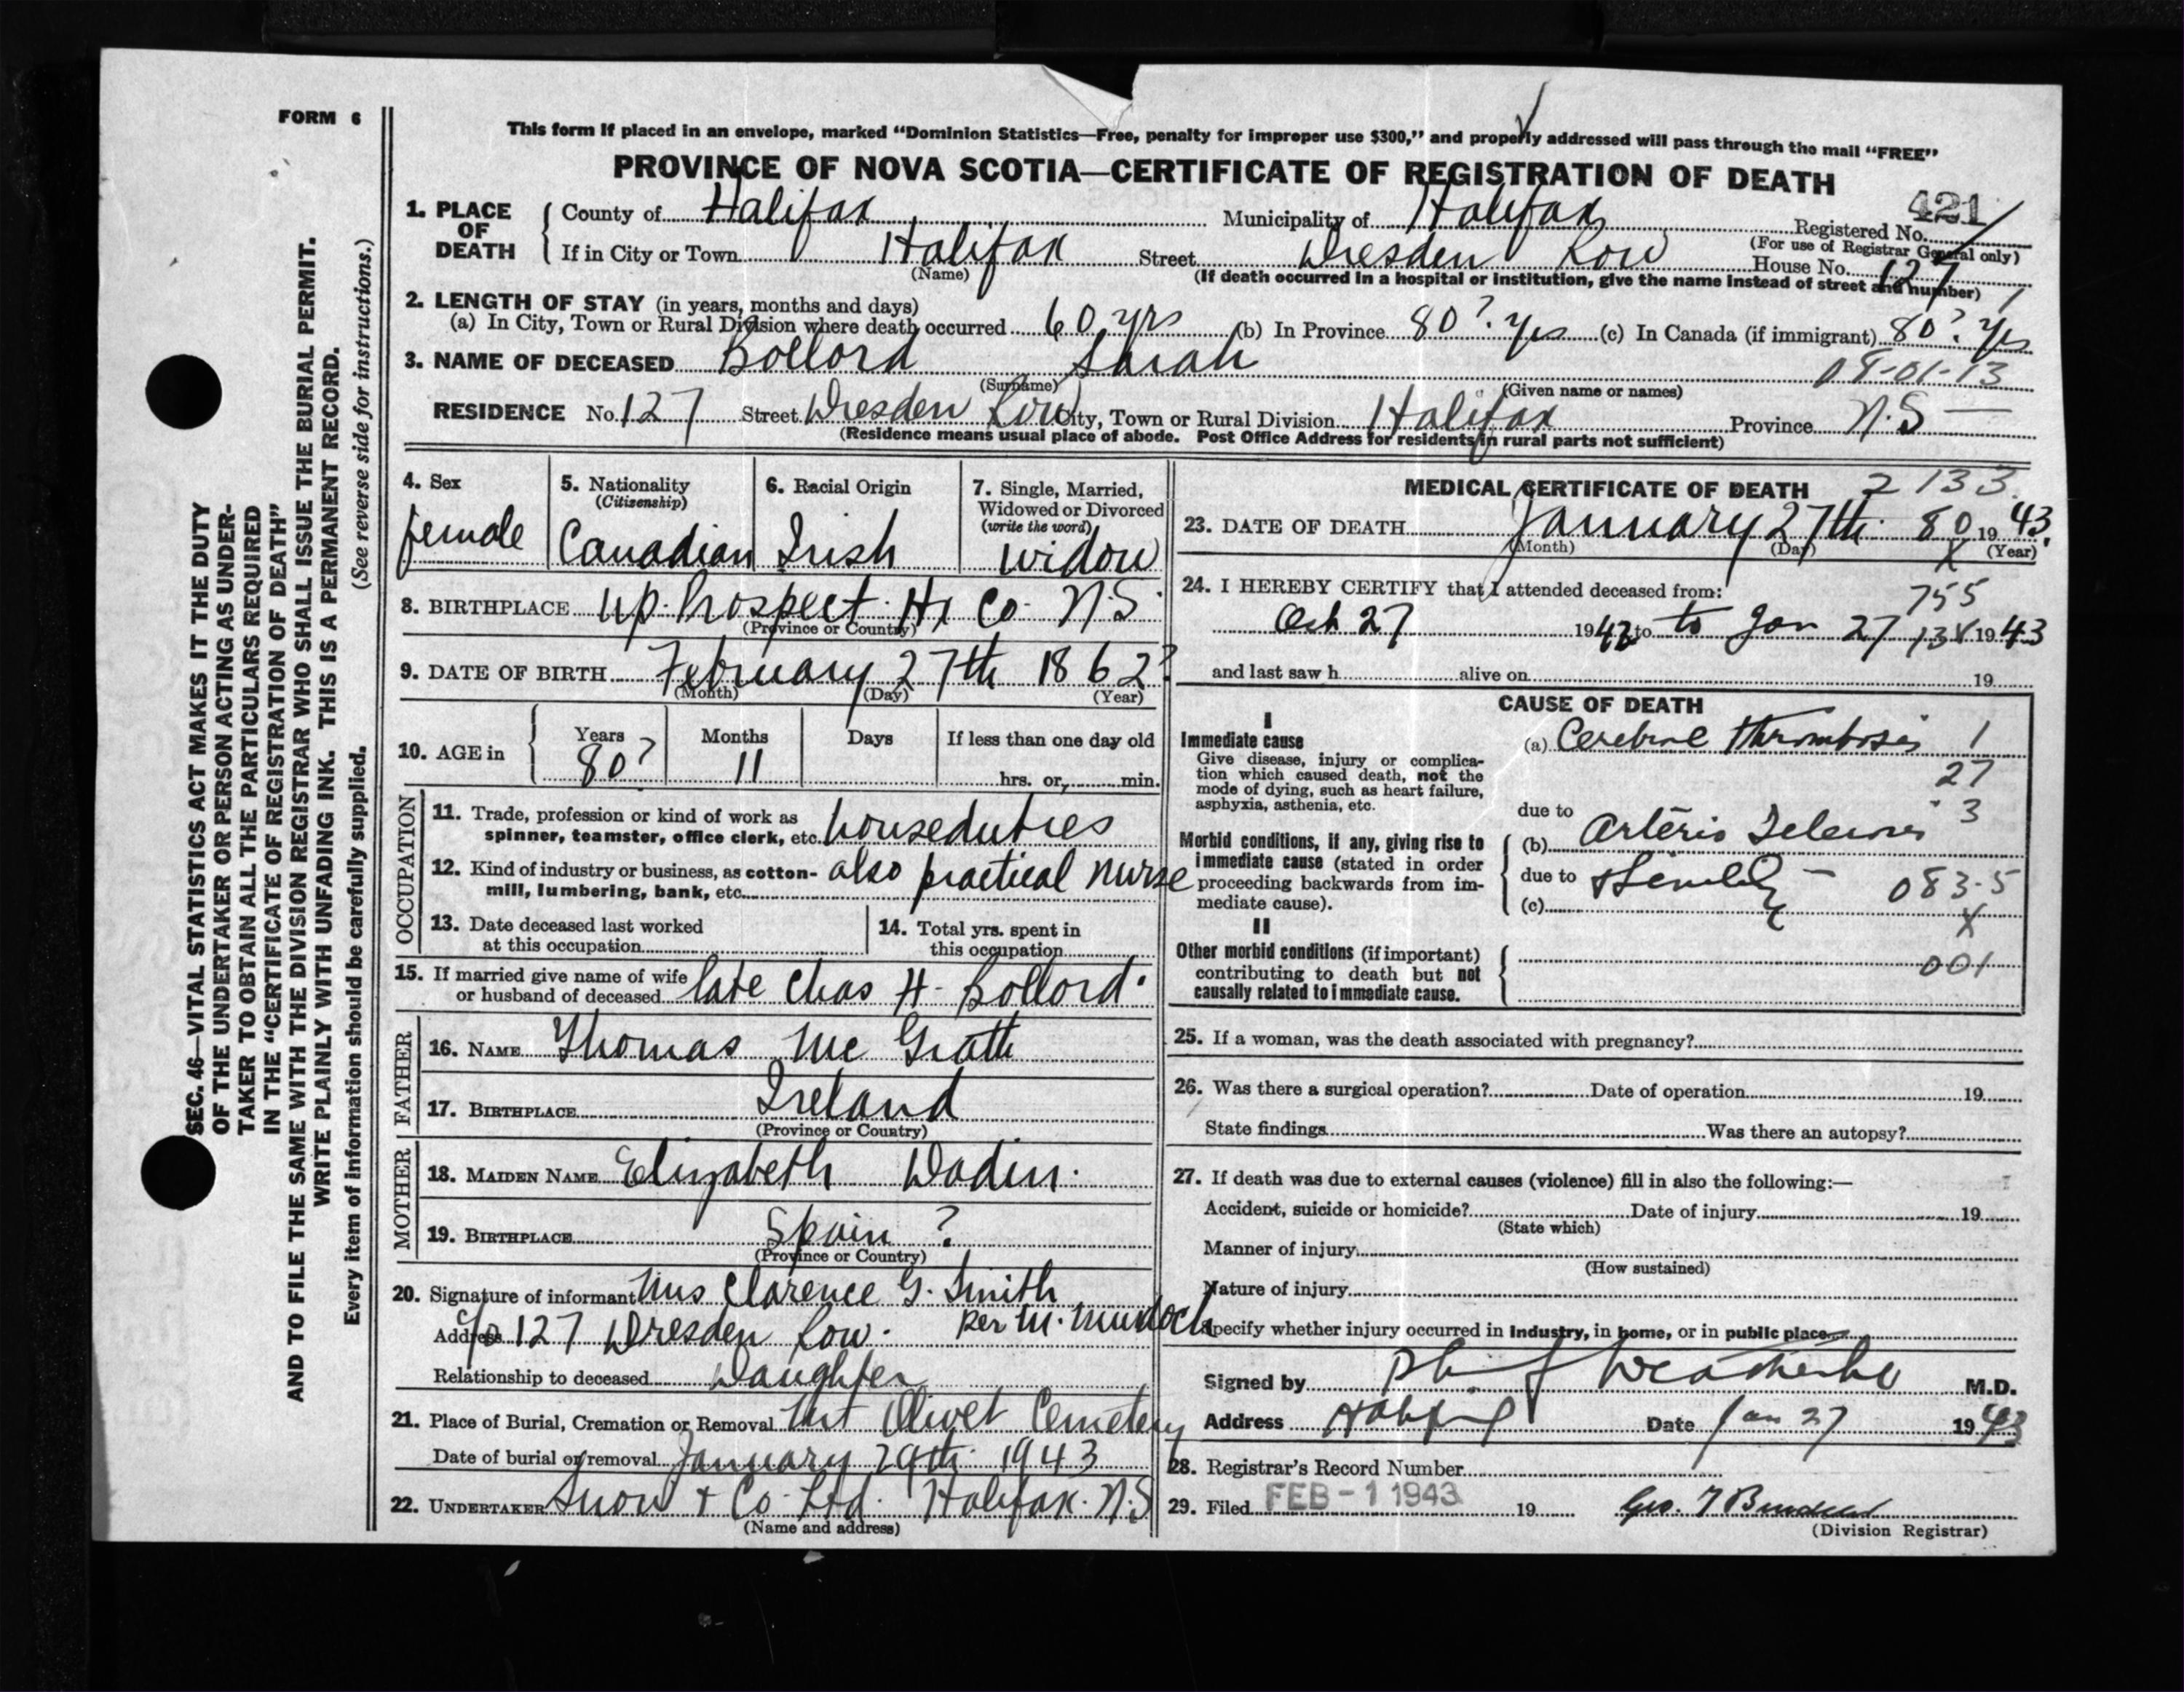 FORM 6
This form if placed in an envelope, marked “Dominion Statistics—Free, penalty for improper use $300,” and properly addressed will pass through the mail “FREE”
PROVINCE OF NOVA SCOTIA—CERTIFICATE OF REGISTRATION OF DEATH
421
1. PLACE OF DEATH
County of Halifax Municipality of Halifax Registered No.
(For use of Registrar General only)
If in City or Town Halifax Street Dresden Row House No. 127
(Name) (If death occurred in a hospital or institution, give the name instead of street and number)
2. LENGTH OF STAY (in years, months and days)
(a) In City, Town or Rural Division where death occurred 60 yrs (b) In Province 80?. yrs (c) In Canada (if immigrant) 80?. yrs
3. NAME OF DECEASED Bollord Sarah
(Surname) (Given name or names) 08-01-13
RESIDENCE No. 127 Street Dresden Row City, Town or Rural Division Halifax Province N.S—
(Residence means usual place of abode. Post Office Address for residents in rural parts not sufficient)
4. Sex
female
5. Nationality
(Citizenship)
Canadian
6. Racial Origin
Irish
7. Single, Married,
Widowed or Divorced
(write the word)
widow
8. BIRTHPLACE up. Prospect. Hx Co. N.S.
(Province or Country)
9. DATE OF BIRTH February 27th 1862?
(Month) (Day) (Year)
10. AGE in
Years Months Days If less than one day old
80? 11 hrs. or, min.
OCCUPATION
11. Trade, profession or kind of work as
spinner, teamster, office clerk, etc. houseduties
12. Kind of industry or business, as cotton-
mill, lumbering, bank, etc. also practical nurse
13. Date deceased last worked
at this occupation
14. Total yrs. spent in
this occupation
15. If married give name of wife
or husband of deceased late Chas H- Bollord.
FATHER
16. NAME Thomas Mc Grath
17. BIRTHPLACE Ireland
(Province or Country)
MOTHER
18. MAIDEN NAME Elizabeth Dodin.
19. BIRTHPLACE Spain ?
(Province or Country)
20. Signature of informant Mrs Clarence G. Smith
per M. Murdoch
Address c/o 127 Dresden Row.
Relationship to deceased Daughter
21. Place of Burial, Cremation or Removal Mt Olivet Cemetery
Date of burial or removal January 29th. 1943
22. UNDERTAKER Snow + Co. Ltd. Halifax. N.S
(Name and address)
MEDICAL CERTIFICATE OF DEATH 2133
23. DATE OF DEATH January 27th. 80 1943.
(Month) (Day) X (Year)
24. I HEREBY CERTIFY that I attended deceased from:
755
Oct 27 1942 to to Jan 27 1943
and last saw h alive on 19
CAUSE OF DEATH
I
Immediate cause
Give disease, injury or complica-
tion which caused death, not the
mode of dying, such as heart failure,
asphyxia, asthenia, etc.
(a) Cerebral thrombosis 1
27
3
due to
Morbid conditions, if any, giving rise to
immediate cause (stated in order
proceeding backwards from im-
mediate cause).
(b) Arterio Sclerosis
due to Senility — 083.5
(c) X
II
Other morbid conditions (if important)
contributing to death but not
causally related to immediate cause.
001
25. If a woman, was the death associated with pregnancy?
26. Was there a surgical operation? Date of operation 19
State findings Was there an autopsy?
27. If death was due to external causes (violence) fill in also the following:—
Accident, suicide or homicide? Date of injury 19
(State which)
Manner of injury
(How sustained)
Nature of injury
Specify whether injury occurred in industry, in home, or in public place
Signed by Weatherbe M.D.
Address Halifax Date Jan 27 1943
28. Registrar's Record Number
29. Filed FEB - 1 1943 19
(Division Registrar)
SEC. 46—VITAL STATISTICS ACT MAKES IT THE DUTY
OF THE UNDERTAKER OR PERSON ACTING AS UNDER-
TAKER TO OBTAIN ALL THE PARTICULARS REQUIRED
IN THE “CERTIFICATE OF REGISTRATION OF DEATH”
AND TO FILE THE SAME WITH THE DIVISION REGISTRAR WHO SHALL ISSUE THE BURIAL PERMIT.
WRITE PLAINLY WITH UNFADING INK. THIS IS A PERMANENT RECORD.
Every item of information should be carefully supplied. (See reverse side for instructions.)